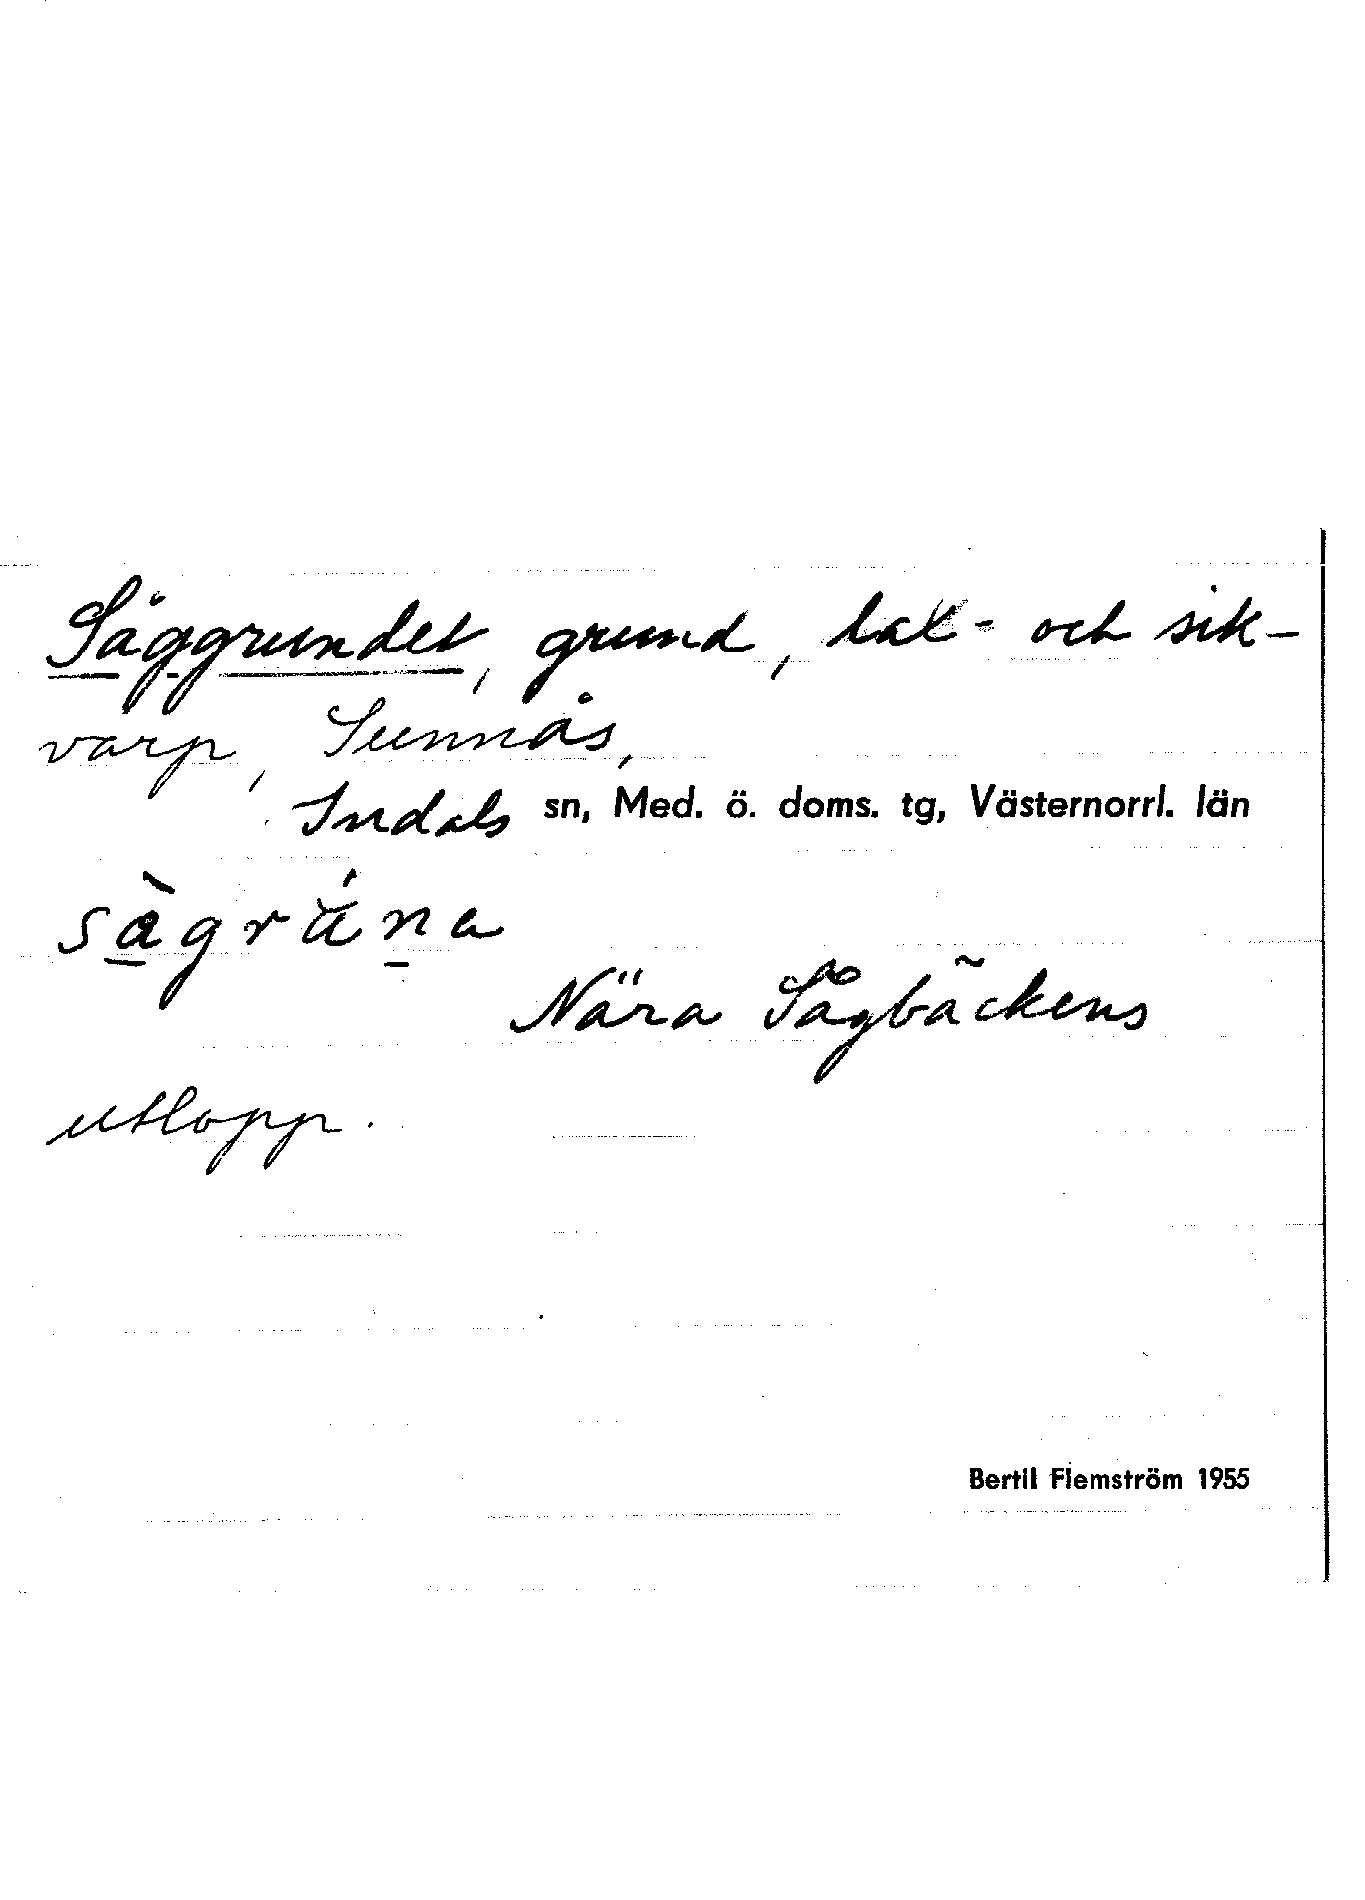 Såggrundet, grund, lax- och sik-
varp, Sunnås,
Indals sn, Med. ö. doms. tg, Västernorrl. län
Nära Sågbäckens
utlopp.
Bertil Flemström 1955